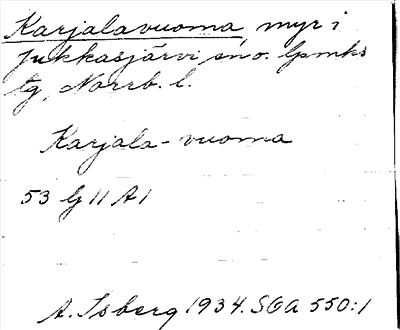 Karjalavuoma, myr i
Jukkasjärvi sno. lpmks
tg, Norrb. l.
Karjala-vuoma
53 G 11 A1
A. Isberg 1934. SOA 550:1